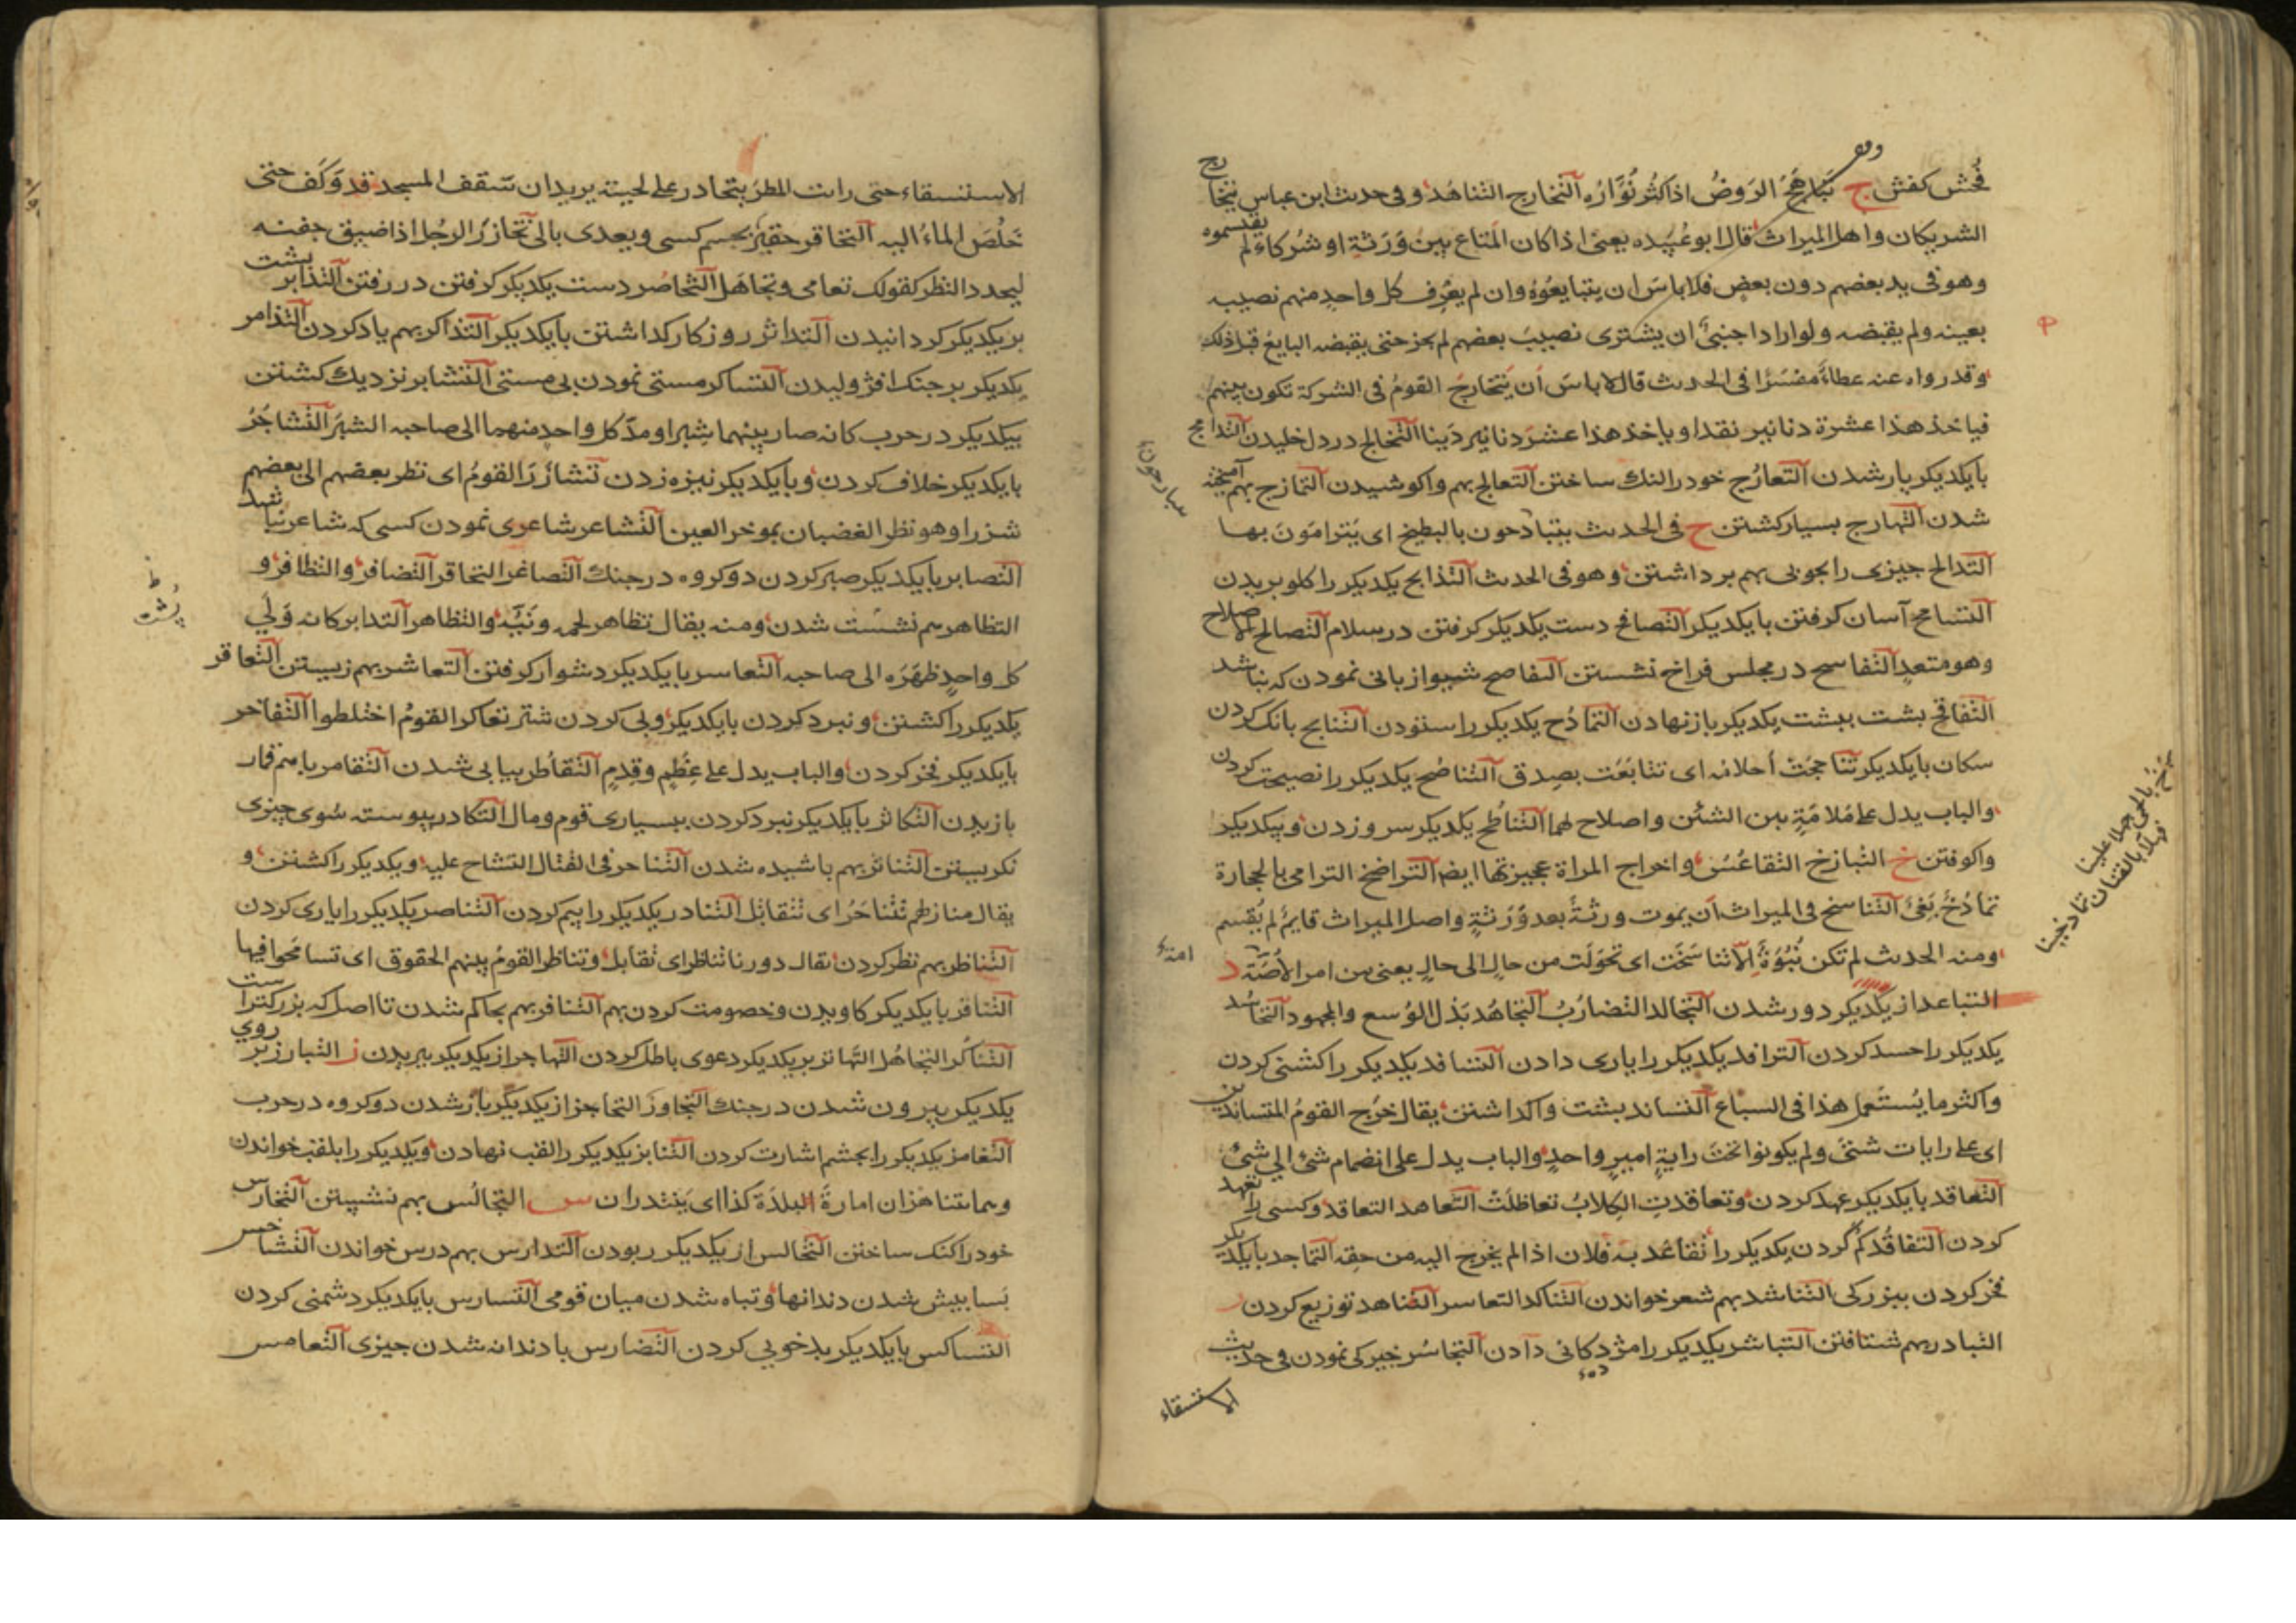 فحش كفش ج تباهج الروض اذا كثر نواره التخارج التناهد وفى حديث ابن عباس يتخارج
الشريكان واهل الميراث قال ابو عبيده يعنى اذا كان المتاع بين ورثة او شركاء لم يقتسموه
وهو فى يد بعضهم دون بعض فلا باس ان يتبايعوه وان لم يعرف كل واحد منهم نصيبه
بعينه ولم يقبضه ولو اراد اجنبى ان يشترى نصيب بعضهم لم يجز حتى يقبضه البايع قبل ذلك
وقد رواه عنه عطاء مفسرا فى الحديث قال لا باس ان يتخارج القوم فى الشركة تكون بينهم
فياخذ هذا عشرة دنانير نقدا وياخذ هذا عشر دنانير دينا التخالج در دل خليدن التدامج
بايكديكر يار شدن التعارج خود را لنك ساختن التعالج بهم واكوشيدن التمازج بهم آميخته
شدن التهارج بسيار كشتن ح فى الحديث يتبادحون بالبطيخ اى يترامون بها
التدالح چيزى را بچوبى بهم برداشتن وهو فى الحديث التذابح يكديكر را كلو بريدن
التسامح آسان كرفتن بايكديكر التصافح دست يكديكر كرفتن در سلام التصالح الاصلاح
وهو متعد التفاسح در مجلس فراخ نشستن التفاصح شيوا زبانى نمودن كه نباشد
التفاقح پشت بپشت يكديكر باز نهادن التمادح يكديكر را ستودن التنابح بانك كردن
سكان بايكديكر تناجحت احلامه اى تتابعت بصدق التناصح يكديكر را نصيحت كردن
والباب يدل على ملامة بين الشئين واصلاح لهما التناطح يكديكر سرو زدن وبيكديكر
واكوفتن خ التبازخ التقاعس واخراج المراة عجيزتها ايضا التراضخ الترامى بالحجارة
تمادخ بغى التناسخ فى الميراث ان يموت ورثة بعد ورثة واصل الميراث قايم لم يقسم
ومنه الحديث لم تكن نبوة الا تناسخت اى تحولت من حال الى حال يعنى من امر الامة د
التباعد از يكديكر دور شدن التجالد التضارب التجاهد بذل الوسع والمجهود التحاسد
يكديكر را حسد كردن الترافد يكديكر را يارى دادن التسافد يكديكر را كشنى كردن
واكثر ما يستعمل هذا فى السباع التساند پشت واكذاشتن يقال خرج القوم المتساندين
اى على رايات شتى ولم يكونوا تحت راية امير واحد والباب يدل على انضمام شئ الى شئ
التعاقد بايكديكر عهد كردن وتعاقدت الكلاب تعاظلت التعاهد التعاقد وكسى را تعهد
كردن التفاقد كم كردن يكديكر را تقاعد به فلان اذا لم يخرج اليه من حقه التماجد بايكديكر
فخر كردن ببزركى التناشد بهم شعر خواندن التناكد التعاسر التناهد توزيع كردن ر
التبادر بهم شتافتن التباشر يكديكر را مژدكانى دادن التجاسر خيركى نمودن فى حديث
الاستسقاء
الاستسقاء حتى رايت المطر يتحادر على لحيته يريد ان سقف المسجد قد وكف حتى
خلص الماء اليه التحاقر حقير بچشم كسى ويعدى بالى تخازر الرجل اذا ضيق جفنه
ليحدد النظر كقولك تعامى وتجاهل التخاصر دست يكديكر كرفتن در رفتن التدابر پشت
بر يكديكر كردانيدن التداثر روزكار كذاشتن بايكديكر التذاكر بهم ياد كردن التذامر
يكديكر بر جنك افژوليدن التساكر مستى نمودن بى مستى التشابر نزديك كشتن
بيكديكر در حرب كانه صار بينهما شبر او مد كل واحد منهما الى صاحبه الشبر التشاجر
بايكديكر خلاف كردن وبايكديكر نيزه زدن تشازر القوم اى نظر بعضهم الى بعضهم
شزرا وهو نظر الغضبان بموخر العين التشاعر شاعرى نمودن كسى كه شاعر نباشد
التصابر بايكديكر صبر كردن دو كروه در جنك التصاغر التحاقر التضافر والتظافر و
التظاهر هم پشت شدن ومنه يقال تظاهر لحمه ونيه والتظاهر التدابر كانه ولى
كل واحد ظهره الى صاحبه التعاسر بايكديكر دشوار كرفتن التعاشر بهم زيستن التعاقر
يكديكر را كشتن ونبرد كردن بايكديكر وپى كردن شتر تعاكر القوم اختلطوا التفاخر
بايكديكر فخر كردن والباب يدل على عظم وقدم التقاطر پياپى شدن التقامر باهم قمار
بازيدن التكاثر بايكديكر نبرد كردن ببسيارى قوم ومال التكادر پيوسته سوى چيزى
نكريستن التناثر بهم پاشيده شدن التناحر فى القتال التشاح عليه ويكديكر را كشتن و
يقال منازلهم تتناحر اى تتقابل التنادر يكديكر را بيم كردن التناصر يكديكر را يارى كردن
التناظر بهم نظر كردن يقال دورنا تناظر اى تقابل وتناظر القوم بينهم الحقوق اى تسامحوا فيها
التنافر بايكديكر كاويدن وخصومت كردن بهم التنافر بهم بحاكم شدن تا اصل كه بزركتراست
التناكر التجاهل التهاتر بر يكديكر دعوى باطل كردن التهاجر از يكديكر ببريدن ز التبارز بر روى
يكديكر بيرون شدن در جنك التجاوز التحاجز از يكديكر باز شدن دو كروه در حرب
التغامز يكديكر را بچشم اشارت كردن التنابز يكديكر را لقب نهادن ويكديكر را بلقب خواندن
وهما يتناهزان امارة البلدة كذا اى يبتدران س التجالس بهم نشستن التخارس
خود را كنك ساختن التخالس از يكديكر ربودن التدارس بهم درس خواندن التشاخس
پسا پيش شدن دندانها وتباه شدن ميان قومى التشارس بايكديكر دشمنى كردن
التشاكس بايكديكر بدخويى كردن التضارس با دندانه شدن چيزى التعامس